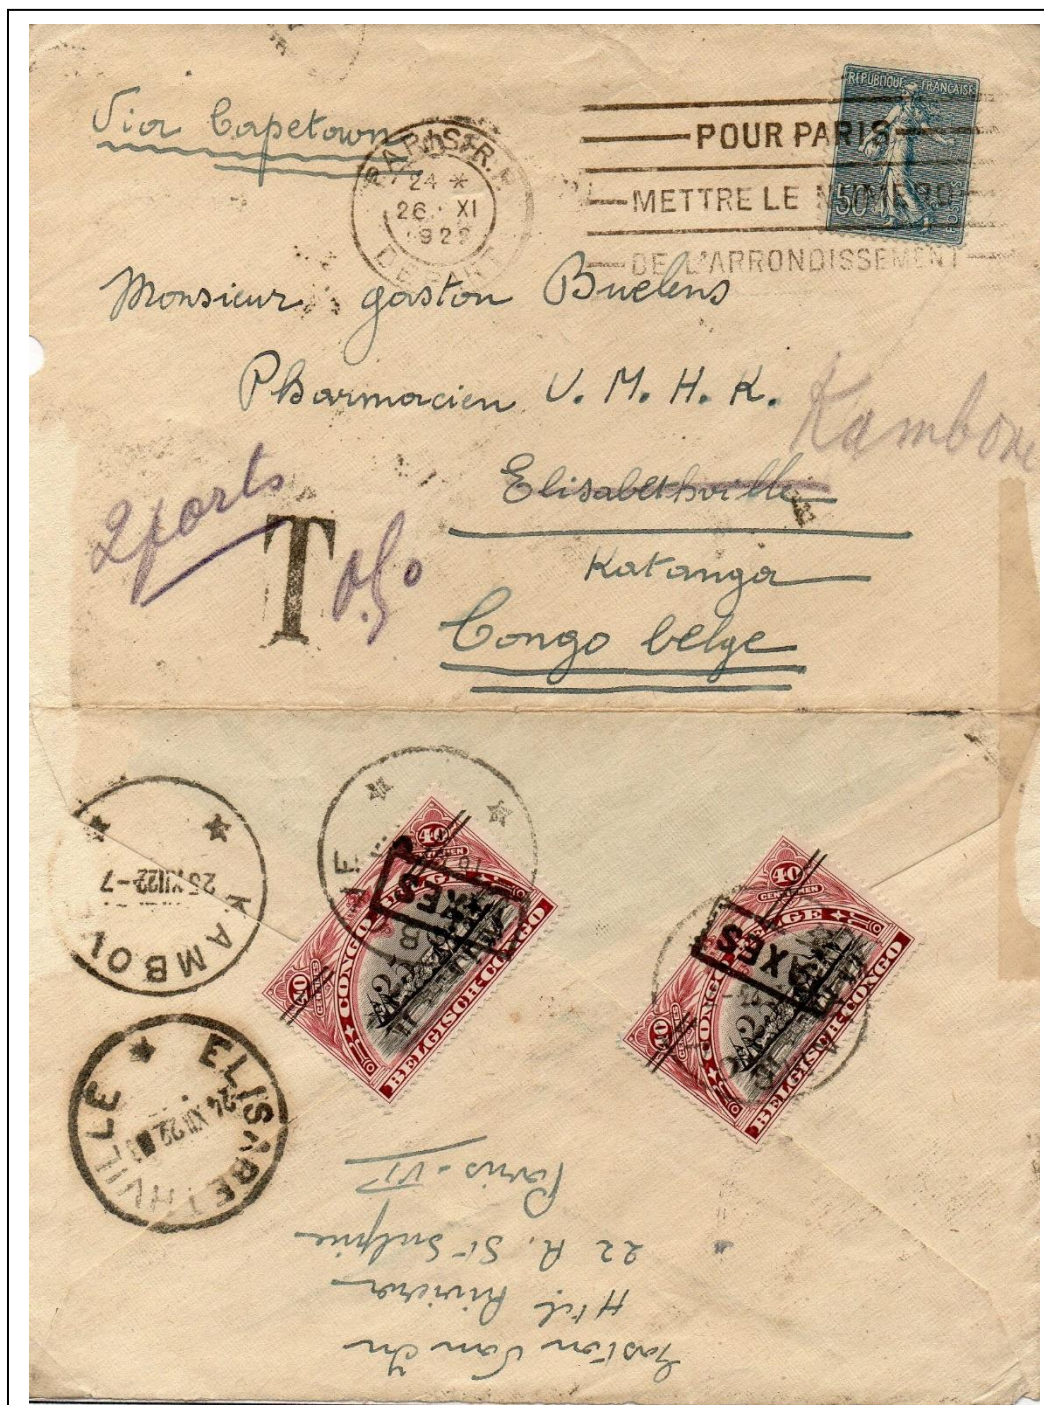 Via Capetown
PARIS R.P.
24 *
26 XI
1922
DEPART
POUR PARIS
METTRE LE NUMERO
DE L'ARRONDISSEMENT
REPUBLIQUE FRANÇAISE
50
Monsieur gaston Buelens
Pharmacien U. M. H. K.
Kambove
Elisabethville
Katanga
Congo belge
2 ports
T 0,50
KAMBO
25 XII 22-7
ELISABETHVILLE
24 XII 22
40
CENTIMES
CENTIEMEN
CONGO BELGE
BELGISCH-CONGO
TAXES
40
CENTIMES
CENTIEMEN
CONGO BELGE
BELGISCH-CONGO
TAXES
Gaston
Htel Riviera
22 R. St Sulpice
Paris-VIe